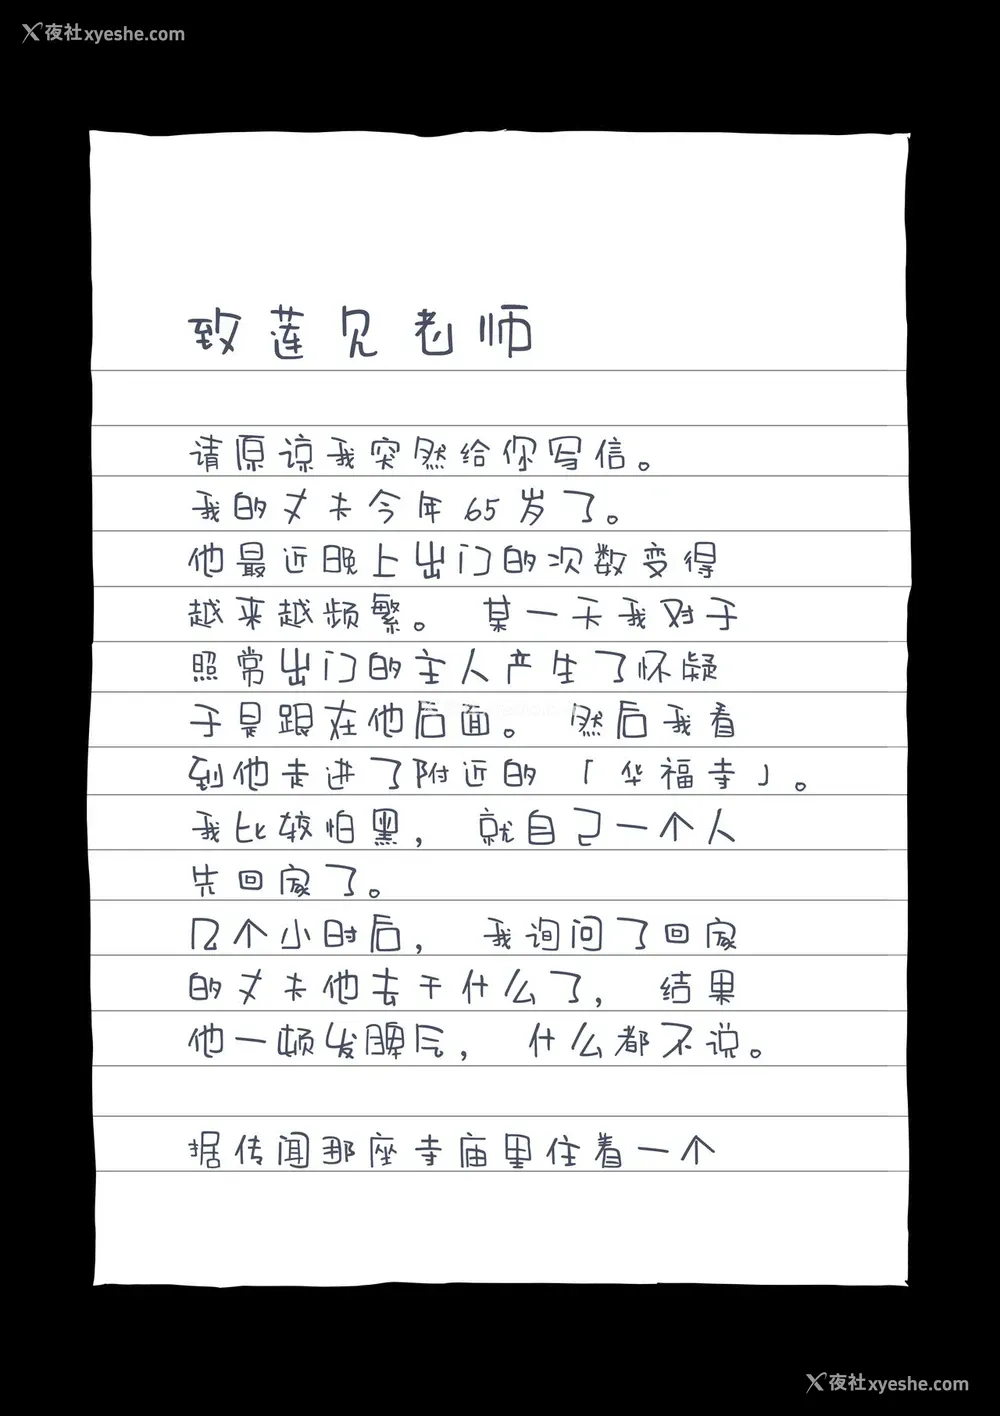 X夜社xyeshe.com
致莲见老师
请原谅我突然给你写信。
我的丈夫今年65岁了。
他最近晚上出门的次数变得
越来越频繁。 某一天我对于
照常出门的主人产生了怀疑
于是跟在他后面。 然后我看
到他走进了附近的「华福寺」。
我比较怕黑， 就自己一个人
先回家了。
几个小时后， 我询问了回家
的丈夫他去干什么了， 结果
他一顿发脾气， 什么都不说。
据传闻那座寺庙里住着一个
X夜社xyeshe.com